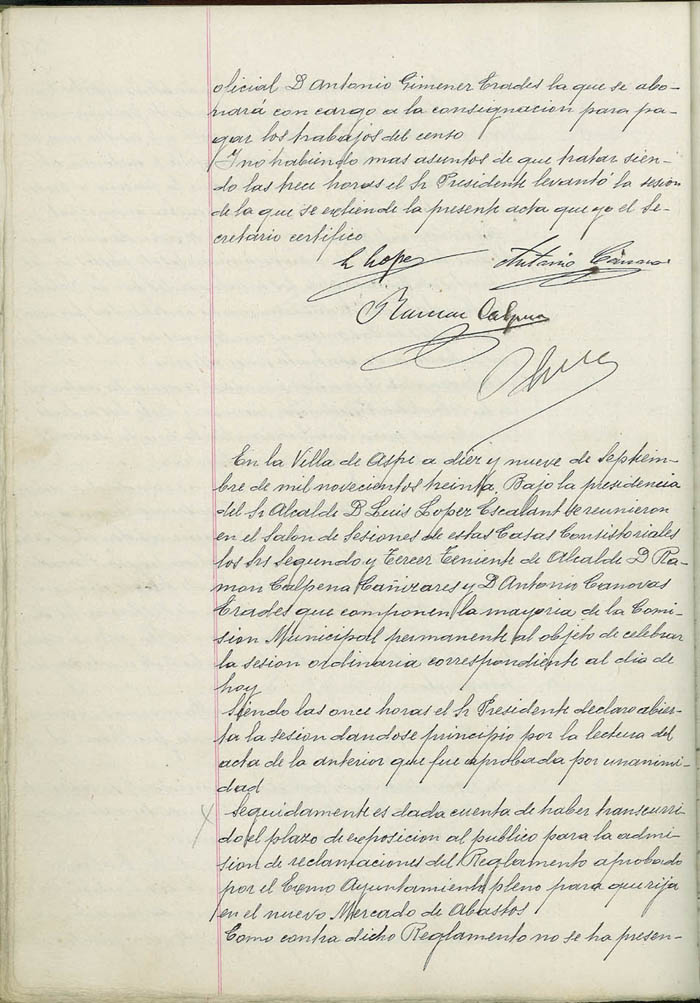 oficial D Antonio Gimenez Erades la que se abo-
nará con cargo a la consignacion para pa-
gar los trabajos del censo
Y no habiendo mas asuntos de que tratar sien-
do las trece horas el Sr Presidente levantó la sesion
de la que se extiende la presente acta que yo el Se-
cretario certifico
L Lopez Antonio Cánovas
Ramon Calpena
En la Villa de Aspe a diez y nueve de Septiem-
bre de mil novecientos treinta, Bajo la presidencia
del Sr Alcalde D Luis Lopez Escalant se reunieron
en el Salon de Sesiones de estas Casas Consistoriales
los Srs Segundo y Tercer Teniente de Alcalde D Ra-
mon Calpena Cañizares y D Antonio Canovas
Erades que componen la mayoria de la Comi-
sion Municipal permanente al objeto de celebrar
la sesion ordinaria correspondiente al dia de
hoy
Siendo las once horas el Sr Presidente declaro abier-
ta la sesion dandose principio por la lectura del
acta de la anterior que fue aprobada por unanimi-
dad
Seguidamente es dada cuenta de haber transcurri-
do el plazo de exposicion al publico para la admi-
sion de reclamaciones del Reglamento aprobado
por el Exmo Ayuntamiento pleno para que rija
en el nuevo Mercado de Abastos
Como contra dicho Reglamento no se ha presen-